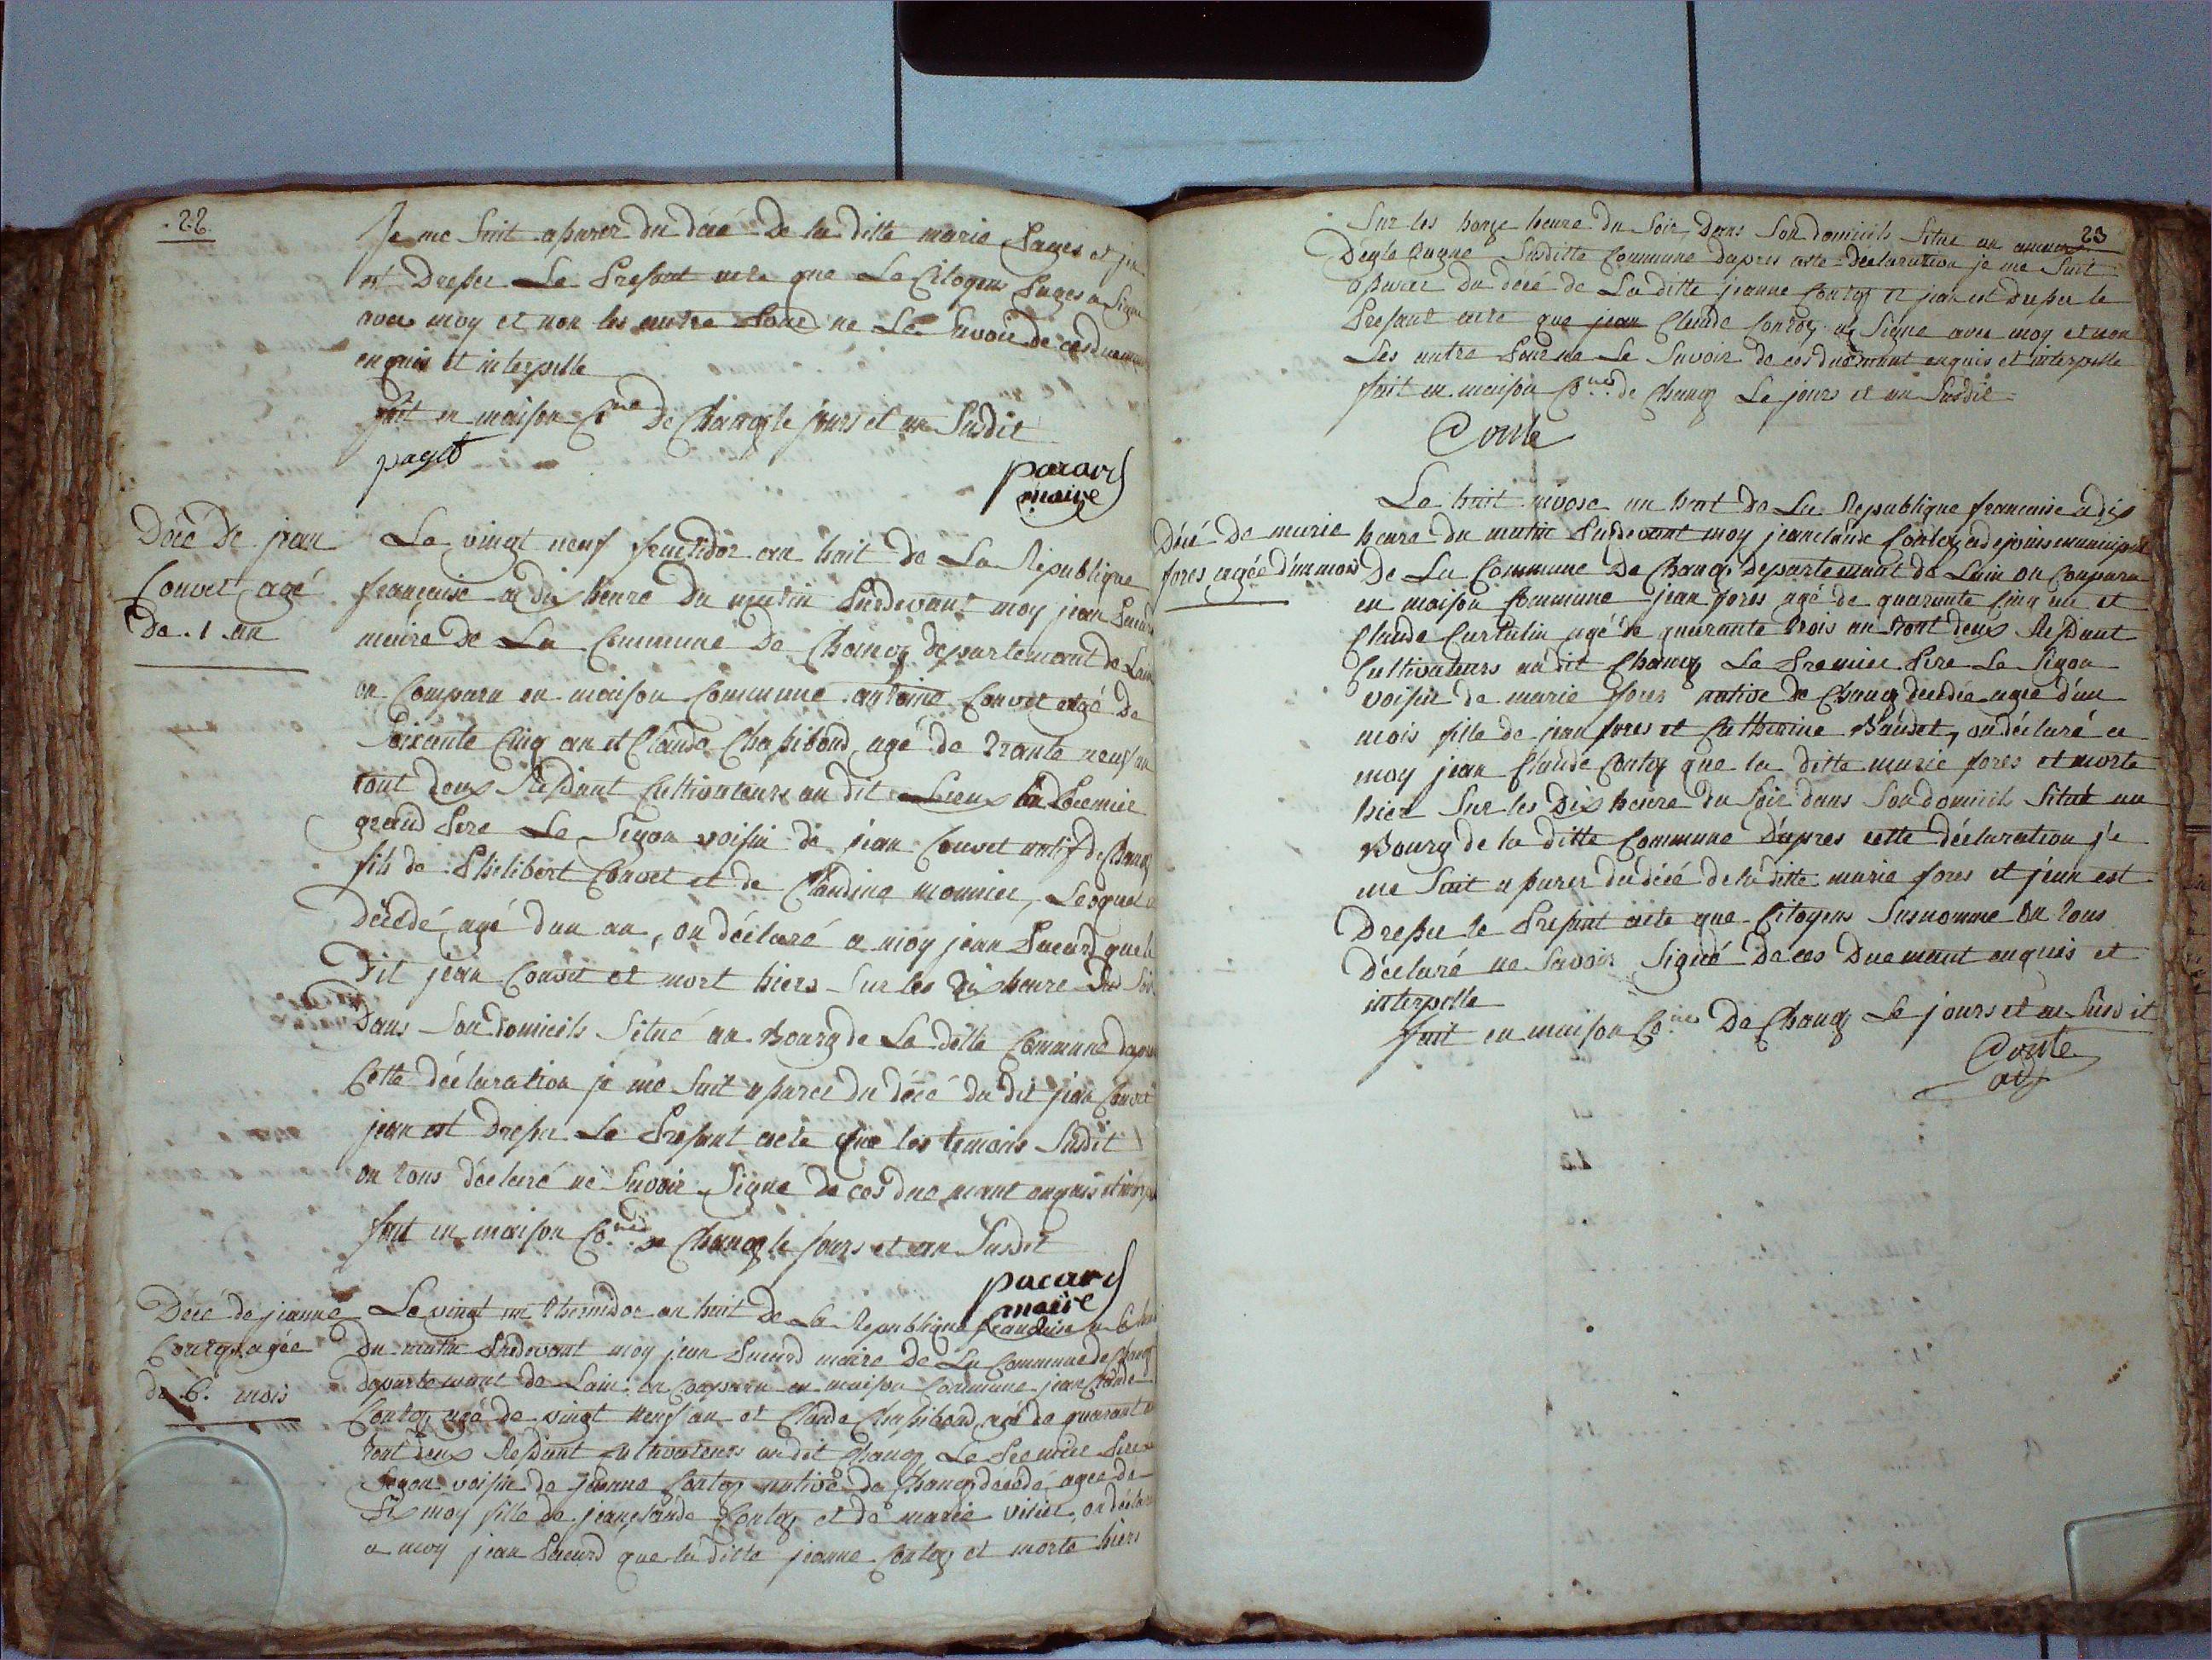 22.
Je me suit asurer du décé De la ditte marie Pages et jen
est Dresser Le Present acte que Le Citoyens Pages a Signe
avec moy et non les autre Pour ne Le Savoir de ces duemant
enquis et interpelle
fait en maison Cne De Chanoz le jours et an Susdit
paget
pacard
maire
Décé De jean
Convet agé
De 1 an
Le vingt neuf fructidor an huit de La Republique
française a dix heure Du matin Pardevant moy jean Pacard
maire de La Commune De Chanoz departemant de Lain
on Comparu en maison Commune antoine Convet agé De
Soixante Cinq an et Claude Chassiboud, agé de trante neuf an
tout deux Residant Cultivateurs au dit Lieux Le Premier
grand Pere Le Segon voisin de jean Convet natif de Chanoz
fils de Philibert Convet et de Claudine monnier, Lesquel
décedé, agé dun an, on déclaré a moy jean Pacard que le
Dit jean Convet et mort hiers Sur les dix heure du Soir
Dans Son domicils Situé au Bourg de La ditte Commune dapres
Cette déclaration je me Suit asurer du décé du dit jean Convet
jean est Dresser Le Present acte que les temoins Susdit
on tous déclaré ne Savoir Signé de ces due mant enquis et interpelle
fait en maison Cone de Chanoz le jours et an Susdit
pacard
maire
Décé de jeanne
Contoz agée
de 6. mois
Le vingt un thermidor an huit De La Republique francaise a 6 heure
Du matin Pardevant moy jean Pacard maire De La Commune de Chanoz
departemant de Lain on Comparu en maison Commune jean Claude
Contoz agé de vingt neuf an et Claude Chassiboud, agé de quarante
tout deux Residant Cultivateurs audit Chanoz Le Premier Pere
Segon voisin de jeanne Contoz native de Chanoz décedé agee de
Six moy fille de jean Claude Contoz et de marie vivier, on déclaré
a moy jean Pacard que la ditte jeanne Contoz et morte hiers
23
Sur les honze heure du Soir Dans Son domicils Situe au
Susditte Commune dapres cette declaration je me Suit
asurer du décé de La ditte jeanne Contoz et jean est dresser le
Presant acte que jean Claude Contoz a Signe avec moy et non
Les autre Pour ne Le Savoir de ces duemant enquis et interpelle
fait en maison Cone de Chanoz Le jours et an Susdit
Conte
Décé De marie
fores agée d'un mois
Le huit nivose an huit De La Republique francaise a dix
heure du matin Pardevant moy jean claude Contoz adejoins municipal
De La Commune De Chanoz departemant de Lain on Comparu
en maison Commune jean fores agé de quarante Cinq an et
Claude Curtalin agé de quarante trois an tout deux Residant
Cultivateurs audit Chanoz Le Premier Pere Le Segon
voisin de marie fores native de Chanoz decédée agée d'un
mois fille de jean fores et Catherine Baudet, on déclaré a
moy jean Claude Contoz que la ditte marie fores et morte
hier Sur les Dix heure du Soir dans Son domicil Situé au
Bourg de la ditte Commune Dapres cette déclaration je
me Suit asurer du décé de la ditte marie fores et jean est
Dresser le Present acte que Citoyens Susnomme on tous
déclaré ne Savoir Signé De ces Due mant enquis et
interpelle
fait en maison Cone De Chanoz Le jours et an Susdit
Conte
adj